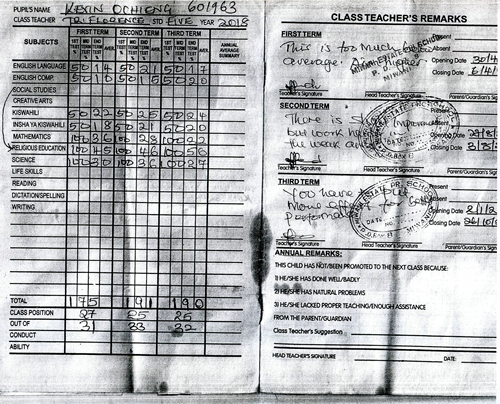 PUPIL'S NAME KEVIN OCHIENG 601963
CLASS TEACHER TR. FLORENCE STD FIVE YEAR 2018
SUBJECTS FIRST TERM SECOND TERM THIRD TERM ANNUAL AVERAGE SUMMARY
1ST TEST % MID TERM % END TERM % AVER. 1ST TEST % MID TERM % END TERM % AVER. 1ST TEST % MID TERM % END TERM % AVER.
ENGLISH LANGUAGE 50 14 50 21 50 17
ENGLISH COMP. 50 10 50 15 50 20
SOCIAL STUDIES
CREATIVE ARTS
KISWAHILI 50 22 50 25 50 24
INSHA YA KISWAHILI 50 18 50 21 50 20
MATHEMATICS 100 26 100 28 100 22
RELIGIOUS EDUCATION 100 45 100 46 100 56
SCIENCE 100 30 100 36 100 27
LIFE SKILLS
READING
DICTATION/SPELLING
WRITING
TOTAL 175 191 190
CLASS POSITION 27 25 25
OUT OF 31 33 32
CONDUCT
ABILITY
CLASS TEACHER'S REMARKS
FIRST TERM
This is too much below
average.
Absent
Opening Date 30/4
Closing Date 6/4/
Teacher's Signature Head Teacher's Signature Parent/Guardian's Sign
SECOND TERM
There is
but work
the weak
Present
Absent
Teacher's Signature Head Teacher's Signature Parent/Guardian's Sign
THIRD TERM
You have to put
more effort for good
performance
Present
Absent
Opening Date
Closing Date 26/10/
Teacher's Signature Head Teacher's Signature Parent/Guardian's Sign
ANNUAL REMARKS:
THIS CHILD HAS/NOT/BEEN PROMOTED TO THE NEXT CLASS BECAUSE:
1) HE/SHE HAS DONE WELL/BADLY
2) HE/SHE HAS NATURAL PROBLEMS
3) HE/SHE LACKED PROPER TEACHING/ENOUGH ASSISTANCE
FROM THE PARENT/GUARDIAN
Class Teacher's Suggestion
HEAD TEACHER'S SIGNATURE DATE: